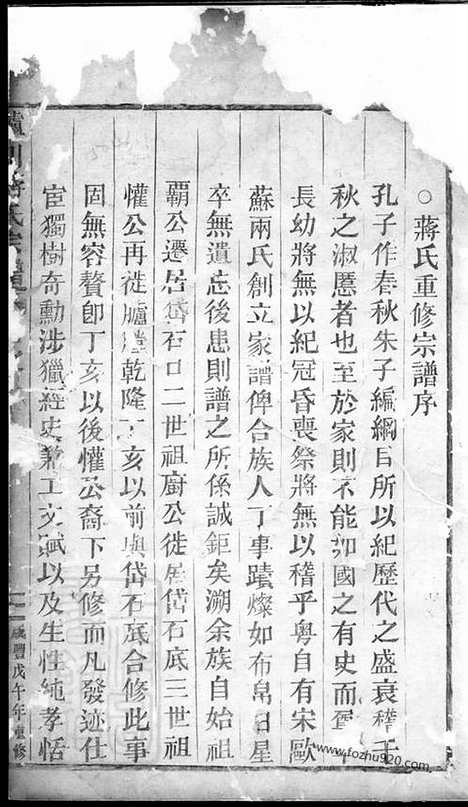 ○蔣氏重修宗譜序
孔子作春秋朱子編綱目所以紀歷代之盛衰釋千
秋之淑慝者也至於家則不能抑國之有史而
長幼將無以紀冠昏喪祭將無以稽乎粤自有宋歐
蘇兩氏創立家譜俾合族人了事蹟燦如布帛日星
卒無遺忘後患則譜之所係誠鉅矣溯余族自始祖
霸公遷居岱石口二世祖㕑公徙居岱石底三世祖
懽公再徙爐 乾隆丁亥以前與岱石底合修此事
固無容贅卽丁亥以後懽公裔下另修而凡發迹仕
宦獨樹奇勳涉獵經史兼工文賦以及生性純孝恬
咸豐戊午年重修
www.fozhu920.com